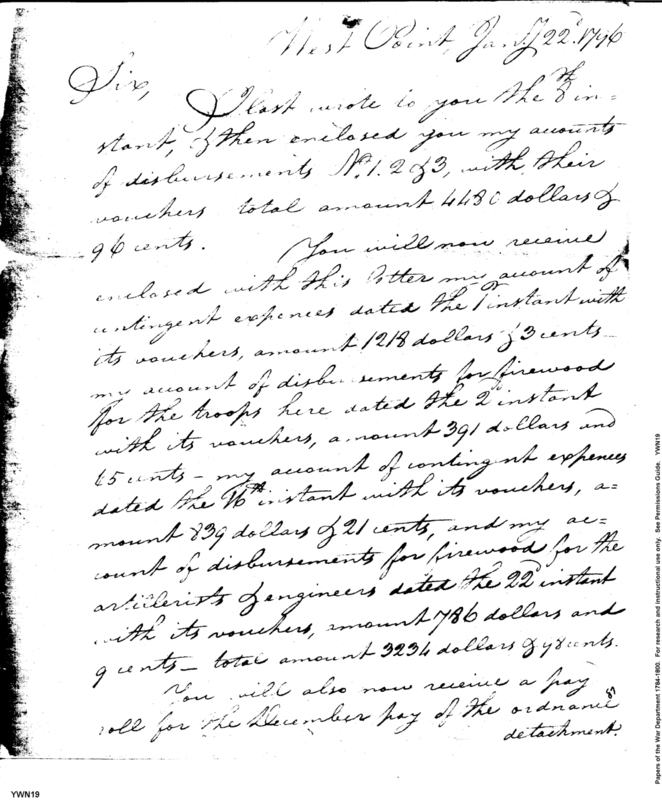 West Point, Jany 22d. 1796
Sir,
I last wrote to you the 8th in=
stant, & then enclosed you my accounts
of disbursements No. 1. 2 & 3, with their
vouchers total amount 4480 dollars &
96 cents. You will now receive
enclosed with this letter my account of
contingent expences dated the 1st instant with
its vouchers, amount 1218 dollars & 3 cents_
my account of disbursements for firewood
for the troops here dated the 2d instant
with its vouchers, amount 391 dollars and
65 cents_ my account of contingent expences
dated the 16th instant with its vouchers, a=
mount 839 dollars & 21 cents, and my ac=
count of disbursements for firewood for the
artillerists & engineers dated the 22d instant
with its vouchers, amount 786 dollars and
9 cents_ total amount 3234 dollars & 98 cents.
You will also now receive a pay
roll for the December pay of the ordnance
detachment.
YWN19
Papers of the War Department 1784-1800. For research and instructional use only. See Permissions Guide. YWN19